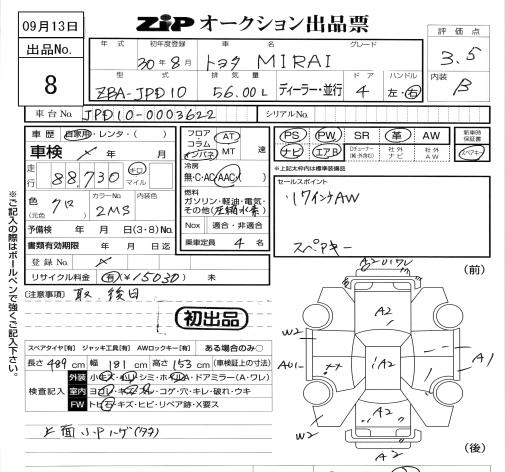 09月13日
ZIP オークション出品票
評価点
3.5
出品No.
8
年式 初年度登録 車名 グレード
30年8月 トヨタ MIRAI
内装
B
型式 排気量 ドア ハンドル
ZBA-JPD10 56.00L ディーラー・並行 4 左・右
車台No. JPD10-0003622 シリアルNo.
車歴 自家用・レンタ・( )
車検 年 月
走行 88,730 キロ マイル
色 クロ (元色) カラーNo. 2MS 内装色
予備検 年 月 日(3・8)No.
書類有効期限 年 月 日迄
登録No.
リサイクル料金 有 ¥15030 未
フロア コラム インパネ AT MT 速
冷房
無・C・AC・AAC・( )
燃料
ガソリン・軽油・電気・その他(圧縮水素)
Nox 適合・非適合
乗車定員 4 名
PS PW SR 革 AW 新車時保証書
ナビ エアB 社外ナビ 社外AW スペアキー
※上記太枠内は標準装備品
セールスポイント
17インチAW
スペアキー
[注意事項] 取、後日
初出品
スペアタイヤ[有] ジャッキ工具[有] AWロックキー[有] ある場合のみ〇
長さ 489 cm 幅 181 cm 高さ 153 cm (車検証上の寸法)
検査記入
外装
室内
FW トビ石・キズ・ヒビ・リペア跡・X要ス
※ご記入の際はボールペンで強くご記入下さい。
(前)
A2
W2
A1
A2
A1
W2
A2
W2
(後)